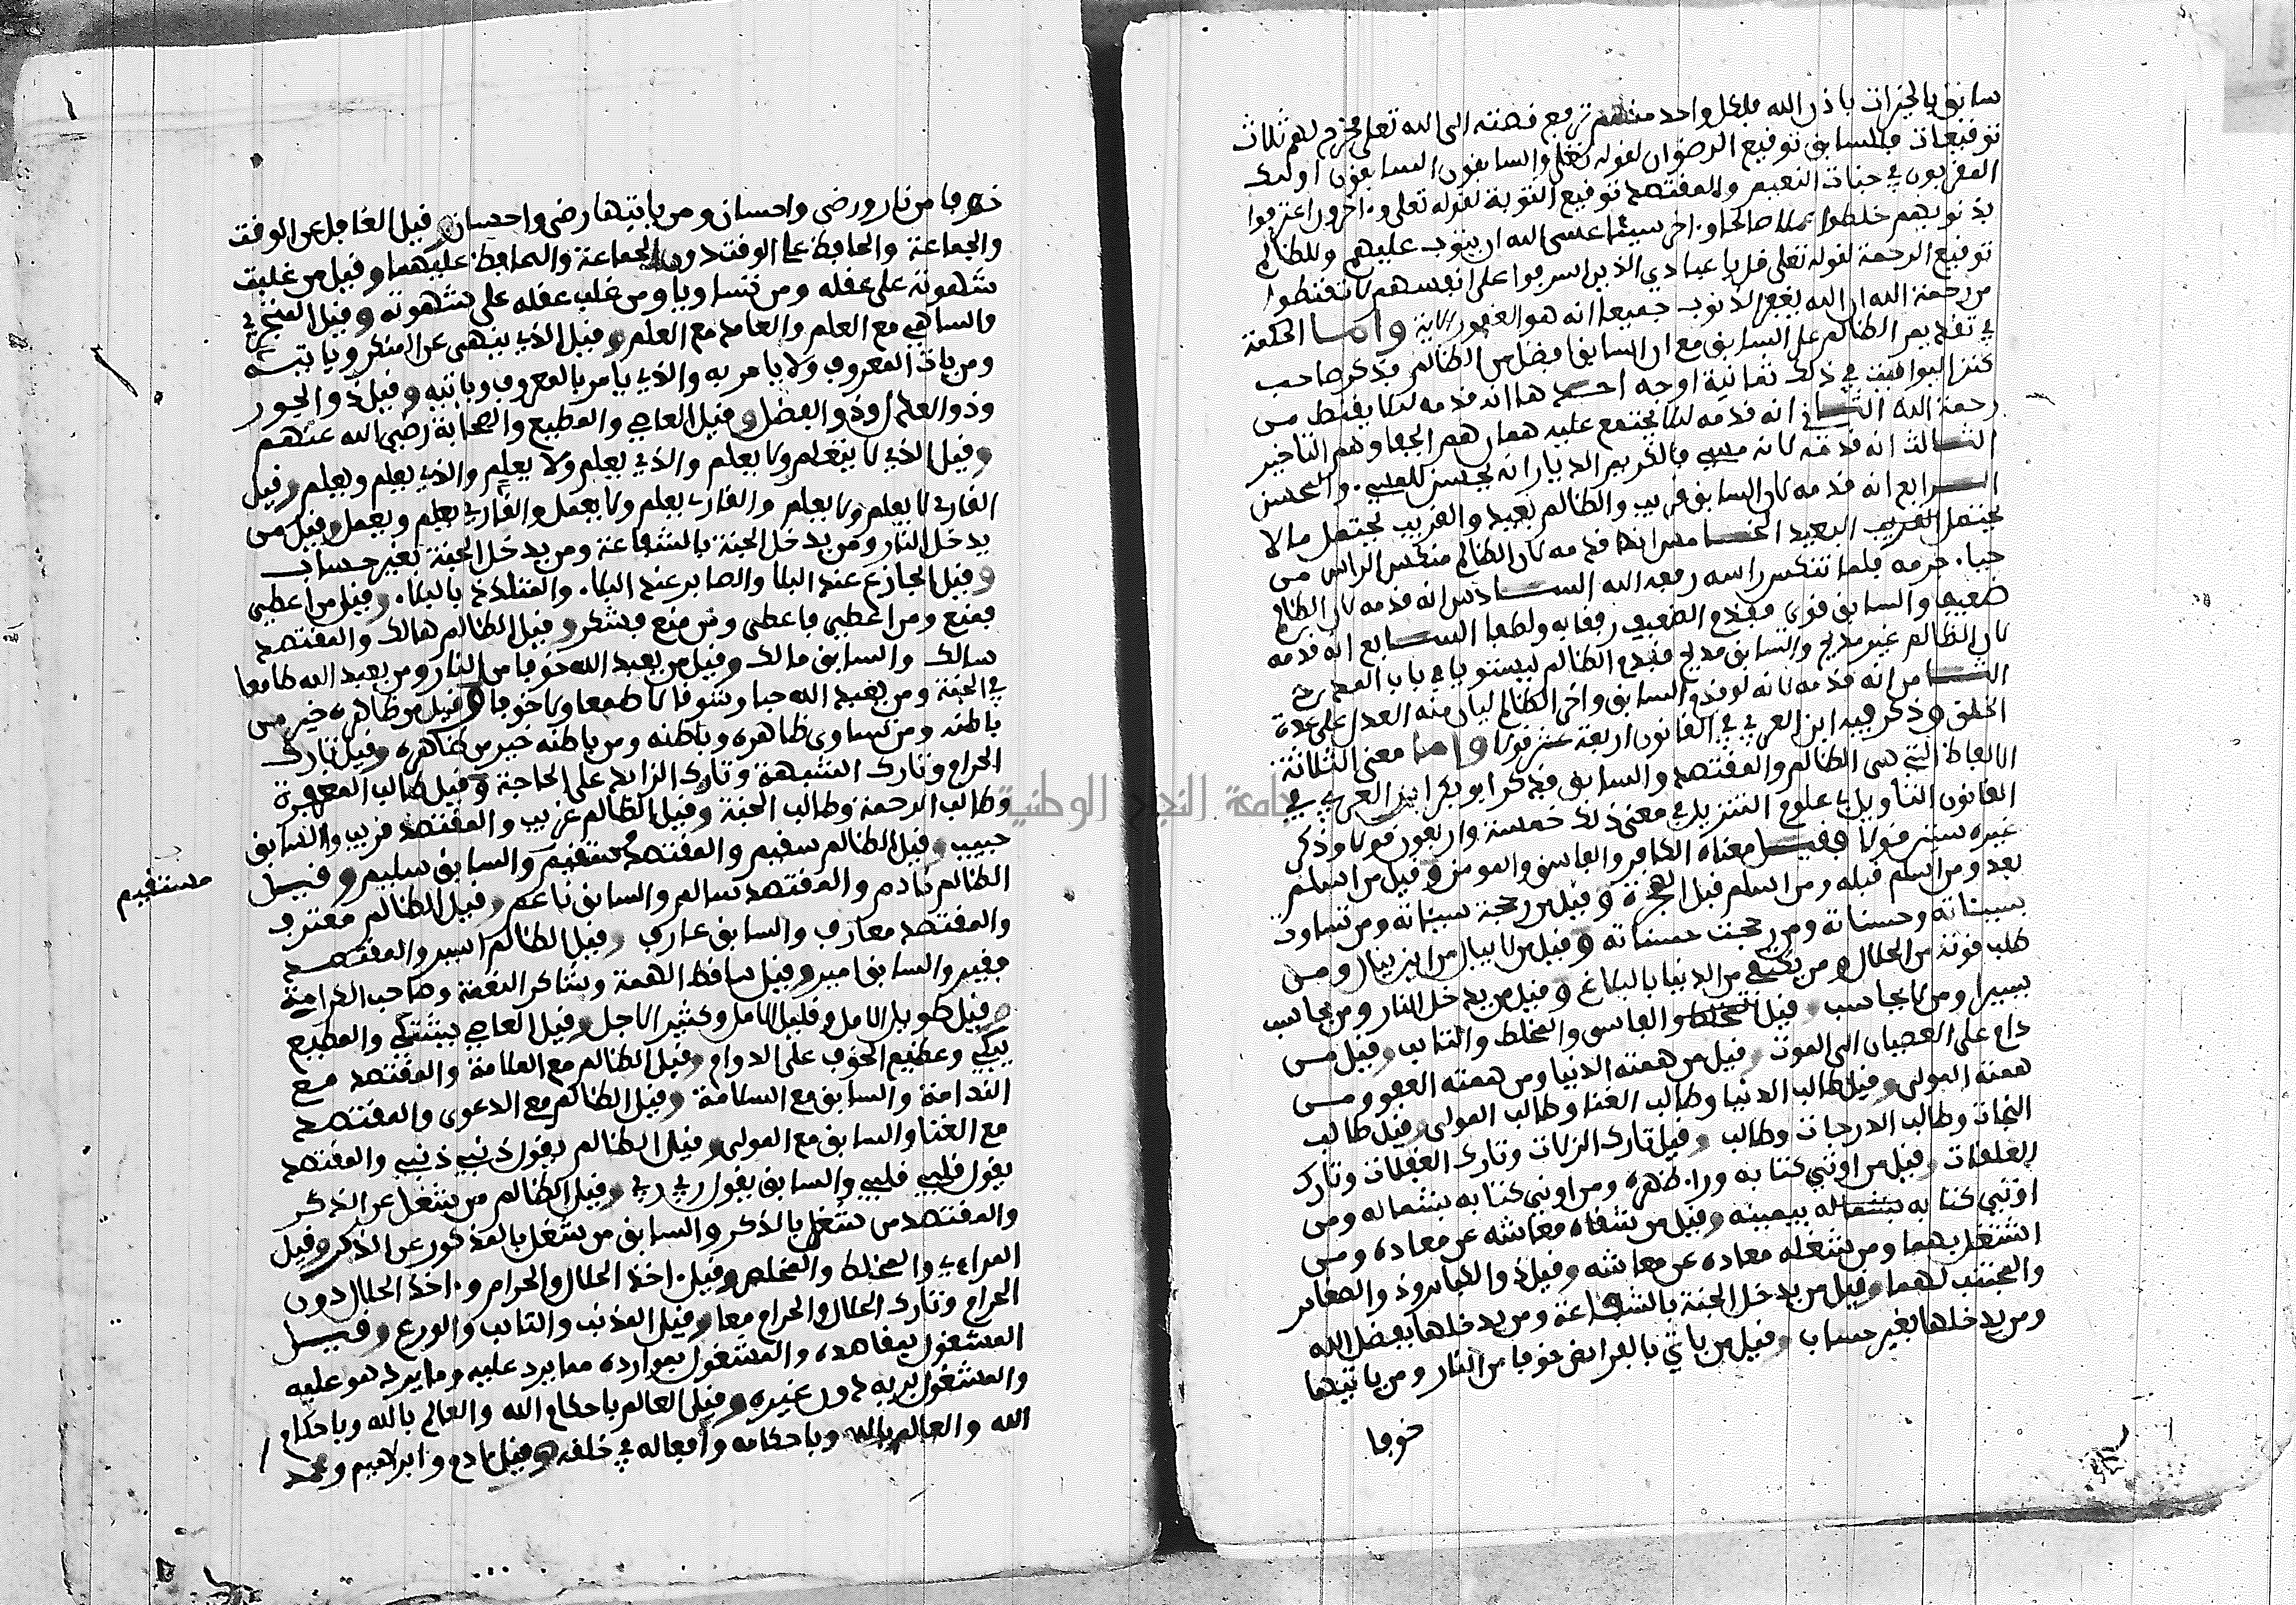 سابق بالخيرات باذن الله فلكل واحد منهم ترفع قصته الى الله تعلى فخرج لهم ثلاث
توقيعات فللسابق توقيع الرضوان لقوله تعلى والسابقون السابقون اولئك
المقربون في جنات النعيم وللمقتصد توقيع التوبة لقوله تعلى وءاخرون اعترفوا
بذنوبهم خلطوا عملا صالحا وءاخر سيئا عسى الله ان يتوب عليهم وللظالم
توقيع الرحمة لقوله تعلى قل يا عبادي الذين اسرفوا على انفسهم لا تقنطوا
من رحمة الله ان الله يغفر الذنوب جميعا انه هو الغفور الاية واما الحكمة
في تقديم الظالم على السابق مع ان السابق افضل من الظالم فذكر صاحب
كنز اليواقيت في ذلك ثمانية اوجه احدها انه قدمه لئلا يقنط من
رحمة الله الثاني انه قدمه لئلا يجتمع عليه همان هم الجفا وهم التاخير
الثالث انه قدمه لانه مسيء فالكريم الديان انه يحسن للمسيء والمحسن
الرابع انه قدمه لان السابق قريب والظالم بعيد والقريب يحتمل ما لا
يحتمل القريب البعيد الخامس انه قدمه لان الظالم منكس الراس من
حياء جرمه فلما تنكس راسه رفعه الله السادس انه قدمه لان الظالم
ضعيف والسابق قوي فقدم الضعيف رفقا به ولطفا السابع انه قدمه
لان الظالم غير مديح والسابق مديح فقدم الظالم ليستويا في باب المدح
الثامن انه قدمه لانه لو قدم السابق واخر الظالم لبان منه العدل على عدة
الخلق وذكر فيه ابن العربي في القانون اربعة عشر قولا واما معنى الثلاثة
الالفاظ التي هي الظالم والمقتصد والسابق فذكر ابو بكر ابن العربي في
القانون التاويل في علوم التنزيل في معنى ذلك خمسة واربعون قولا وذكر
غيره ستين قولا فقيل معناه الكافر والفاسق والمومن وقيل من اسلم
بعد ومن اسلم قبله ومن اسلم قبل الهجرة وقيل من رجحت سيئاته ومن تساوت
سيئاته وحسناته ومن رجحت حسناته وقيل من لا يبال من اين ينال ومن
طلب قوته من الحلال ومن يكتفي من الدنيا بالبلاغ وقيل من يدخل النار ومن يحاسب
يسيرا ومن لا يحاسب وقيل والفاسق والمخلط والتائب وقيل من
دام على العصيان الى الموت وقيل من همته الدنيا ومن همته العفو ومن
همته المولى وقيل طالب الدنيا وطالب الغنا وطالب المولى وقيل طالب
النجات وطالب الدرجات وطالب وقيل تارك الزلات وتارك الغفلات وتارك
العلاقات وقيل من اوتي كتابه وراء ظهره ومن اوتي كتابه بشماله ومن
اوتي كتابه بشماله بيمينه وقيل من شغله معاشه عن معاده ومن
اشتغل بهما ومن شغله معاده عن معاشه وقيل ذو الكبائر وذو الصغائر
والمجتنب لهما وقيل من يدخل الجنة بالشفاعة ومن يدخلها بفضل الله
ومن يدخلها بغير حساب وقيل من ياتي بالفرائض خوفا من النار ومن ياتيها
خوفا
خوفا من نار ورضى واحسان ومن ياتيها رضى واحسان وقيل الغافل عن الوقت
والجماعة والحافظ على الوقت دون الجماعة والمحافظ عليهما وقيل من غلبت
شهوته على عقله ومن تساويا ومن غلب عقله على شهوته وقيل
والساهي مع العلم والعامد مع العلم وقيل الذي ينهى عن المنكر وياتيه
ومن ياتي المعروف ولا يامر به والذي يامر بالمعروف وياتيه وقيل ذو الجور
وذو العدل وذو الفضل وقيل العاصي والمطيع والصحابة رضي الله عنهم
وقيل الذي لا يتعلم ولا يعلم والذي يعلم ولا يعلم والذي يعلم ويعلم وقيل
القارئ لا يعلم ولا يعلم والقارئ يعلم ولا يعمل والقارئ يعلم ويعمل وقيل من
يدخل النار ومن يدخل الجنة بالشفاعة ومن يدخل الجنة بغير حساب
وقيل الجازع عند البلا والصابر عند البلاء والمتلذذ بالبلاء وقيل من اعطي
فمنع ومن اعطي فاعطى ومن منع فشكر وقيل الظالم هالك والمقتصد
سالك والسابق مالك وقيل من يعبد الله خوفا من النار ومن يعبد الله طامعا
في الجنة ومن يعبد الله حبا وشوقا لا طمعا ولا خوفا وقيل من ظاهره خير من
باطنه ومن تساوى ظاهره وباطنه ومن باطنه خير من ظاهره وقيل تارك
الحرام وتارك الشبهة وتارك الزائد على الحاجة وقيل طالب المغفرة
وطالب الرحمة وطالب الجنة وقيل الظالم غريب والمقتصد قريب والسابق
حبيب وقيل الظالم سقيم والمقتصد مستقيم والسابق سليم وقيل
مستقيم
الظالم نادم والمقتصد سالم والسابق ناعم وقيل الظالم معترف
والمقتصد معارف والسابق عارف وقيل الظالم اسير والمقتصد
فقير والسابق امير وقيل ساقط الهمة وشاكر النعمة وصاحب الكرامة
وقيل طويل الامل وقليل الامل وكثير الاجل وقيل العاصي يشتكي والمطيع
يبكي وعظيم الخوف على الدوام وقيل الظالم مع الملامة والمقتصد مع
الندامة والسابق مع السلامة وقيل الظالم مع الدعوى والمقتصد
مع الغنا والسابق مع المولى وقيل الظالم يقول ذنبي ذنبي والمقتصد
يقول قلبي قلبي والسابق يقول ربي ربي وقيل الظالم من شغل عن الذكر
والمقتصد من شغل بالذكر والسابق من شغل بالمذكور عن الذكر وقيل
المراءي والمخلط والمخلص وقيل ءاخذ الحلال والحرام وءاخذ الحلال دون
الحرام وتارك الحلال والحرام معا وقيل المذنب والتائب والورع وقيل
المشغول بمقاصده والمشغول بموارده مما يرد عليه وما يرد هو عليه
والمشغول بربه دون غيره وقيل العالم باحكام الله والعالم بالله وباحكام
الله والعالم بالله وباحكامه وافعاله في خلقه وقيل ءادم وابراهيم ومحمد
جامعة النجاح الوطنية